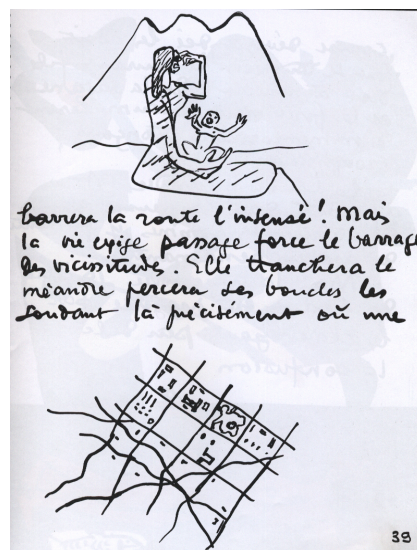 barrera la route l'insensé ! Mais
la vie exige passage force le barrage
des vicissitudes. Elle tranchera le
méandre percera ses boucles les
soudant là précisément où une
39